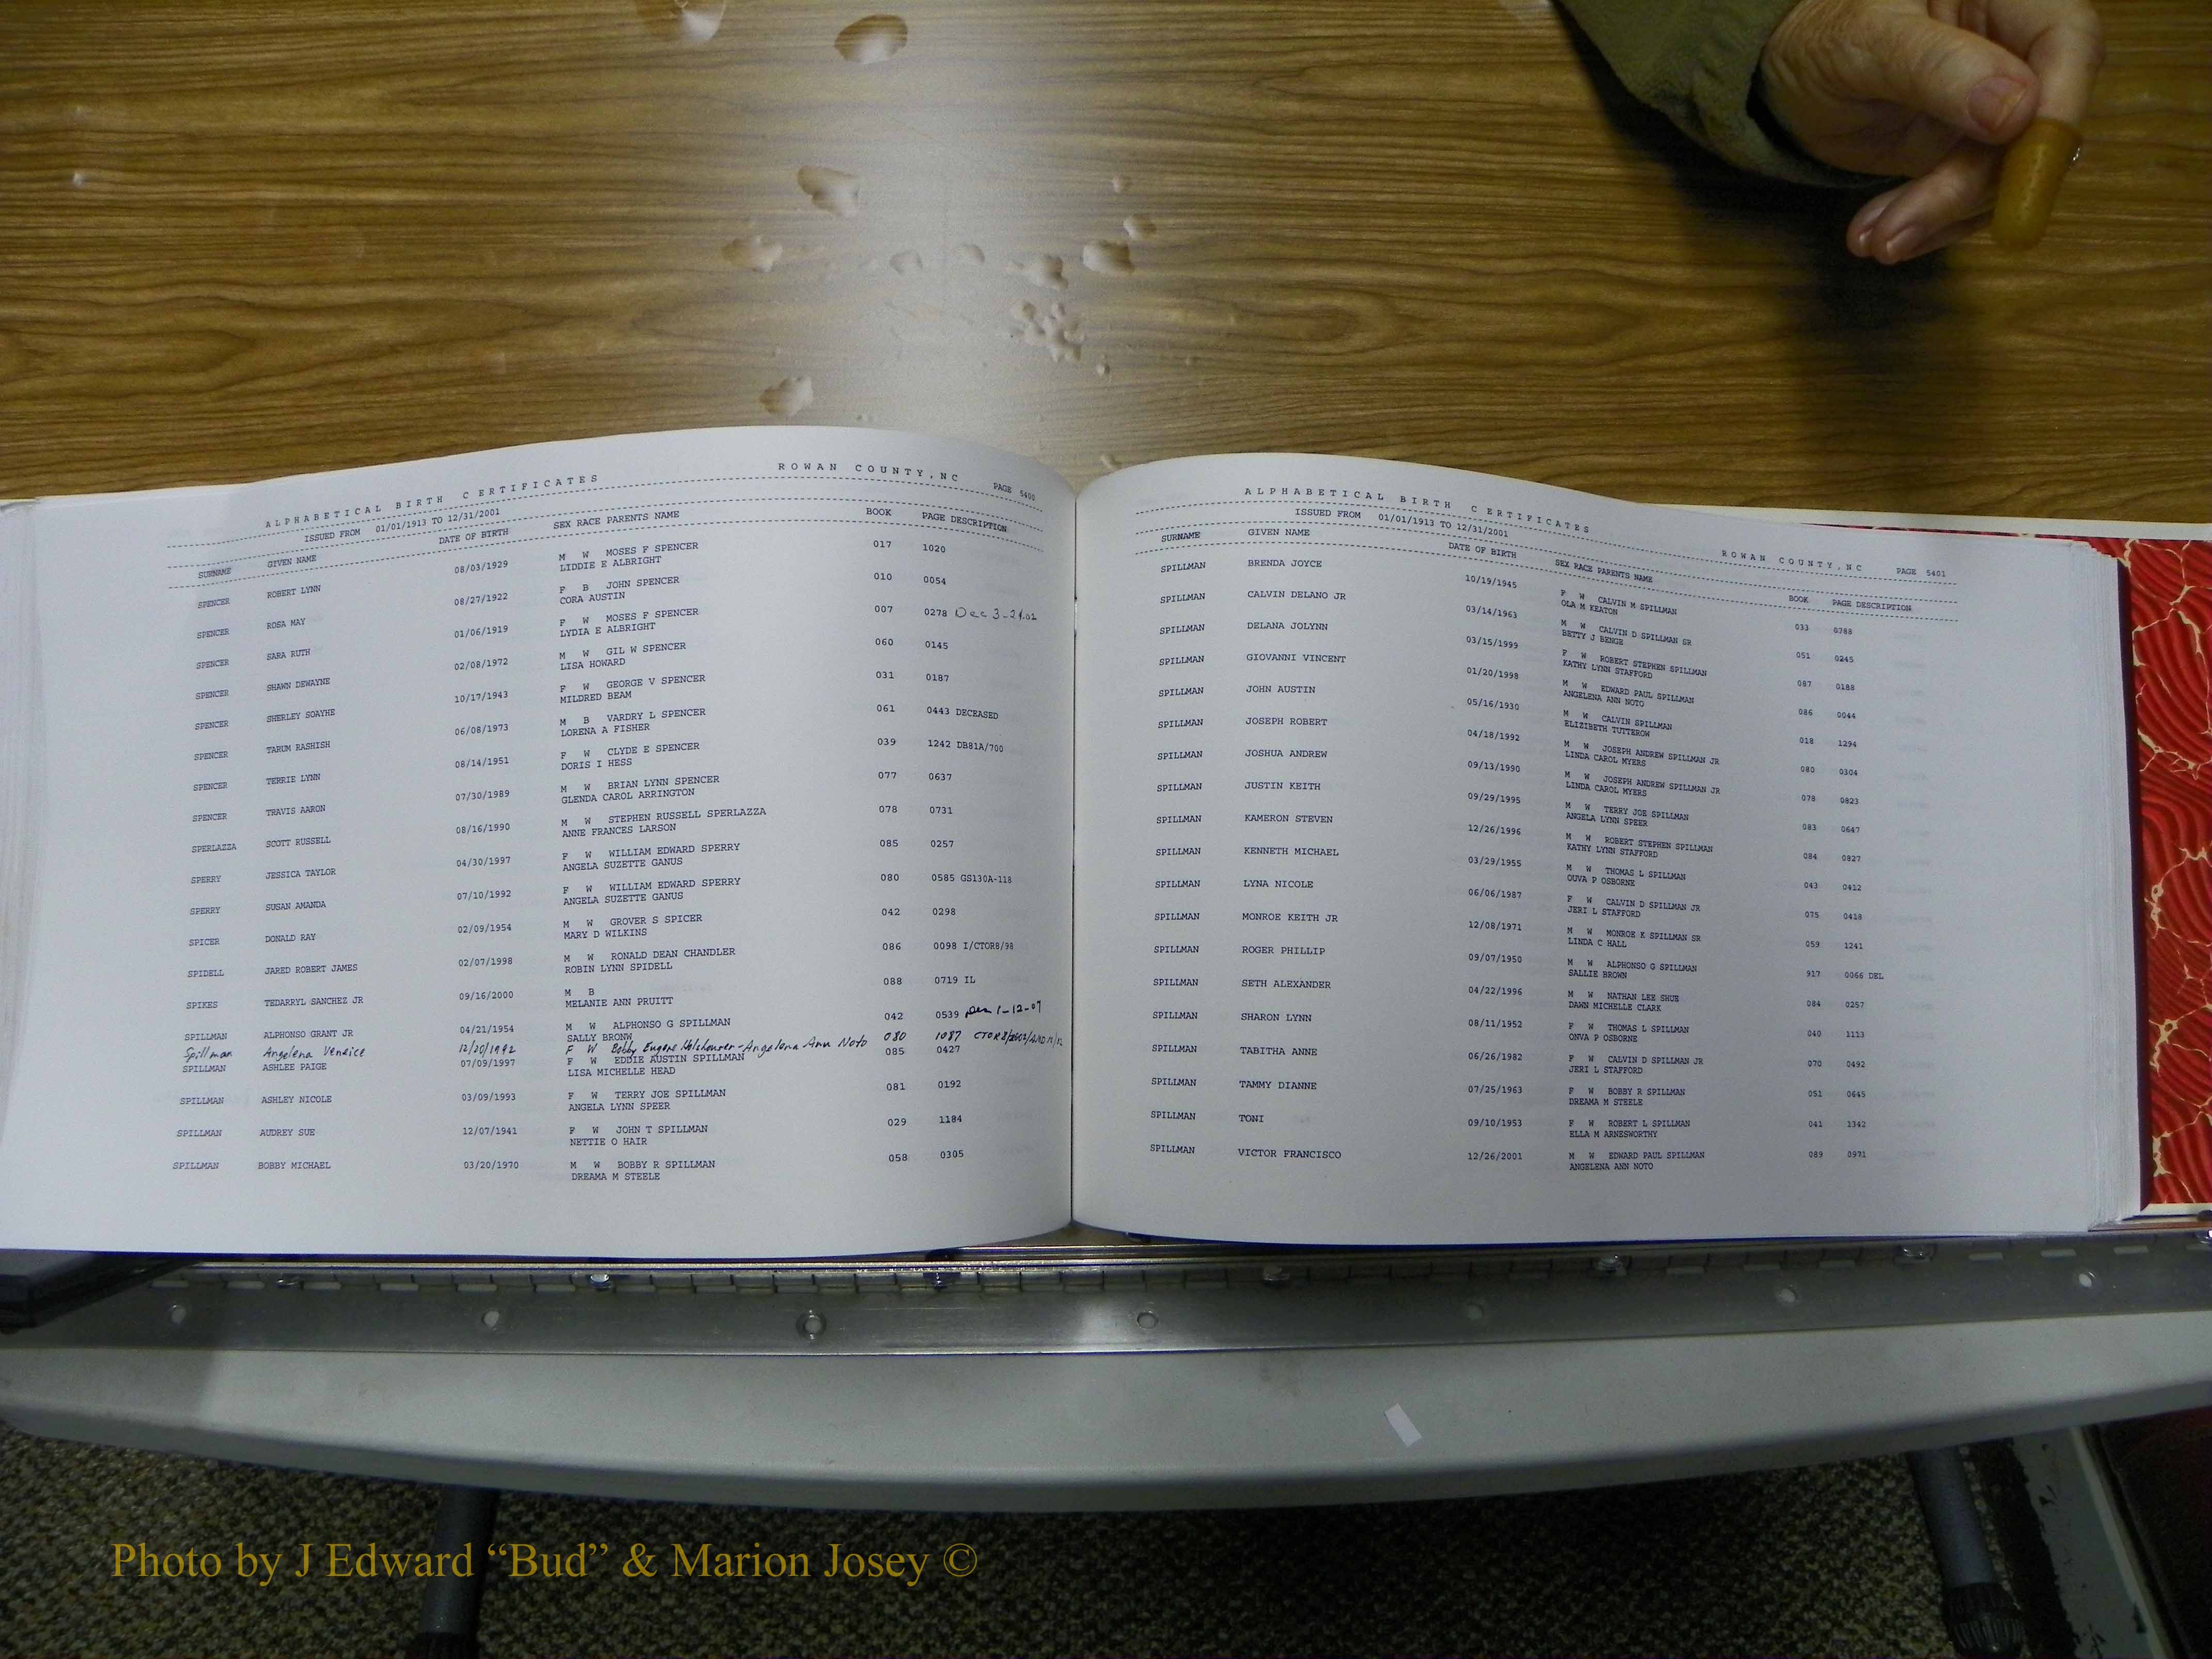 ALPHABETICAL BIRTH CERTIFICATES ROWAN COUNTY, NC PAGE 5400
ISSUED FROM 01/01/1913 TO 12/31/2001
SURNAME GIVEN NAME DATE OF BIRTH SEX RACE PARENTS NAME BOOK PAGE DESCRIPTION
SPENCER ROBERT LYNN 08/03/1929 M W MOSES F SPENCER 017 1020
LIDDIE E ALBRIGHT
SPENCER ROSA MAY 08/27/1922 F B JOHN SPENCER 010 0054
CORA AUSTIN
SPENCER SARA RUTH 01/06/1919 F W MOSES F SPENCER 007 0278 Dec 3-21-02
LYDIA E ALBRIGHT
SPENCER SHAWN DEWAYNE 02/08/1972 M W GIL W SPENCER 060 0145
LISA HOWARD
SPENCER SHERLEY SOAYHE 10/17/1943 F W GEORGE V SPENCER 031 0187
MILDRED BEAM
SPENCER TARUM RASHISH 06/08/1973 M B VARDRY L SPENCER 061 0443 DECEASED
LORENA A FISHER
SPENCER TERRIE LYNN 08/14/1951 F W CLYDE E SPENCER 039 1242 DB81A/700
DORIS I HESS
SPENCER TRAVIS AARON 07/30/1989 M W BRIAN LYNN SPENCER 077 0637
GLENDA CAROL ARRINGTON
SPERLAZZA SCOTT RUSSELL 08/16/1990 M W STEPHEN RUSSELL SPERLAZZA 078 0731
ANNE FRANCES LARSON
SPERRY JESSICA TAYLOR 04/30/1997 F W WILLIAM EDWARD SPERRY 085 0257
ANGELA SUZETTE GANUS
SPERRY SUSAN AMANDA 07/10/1992 F W WILLIAM EDWARD SPERRY 080 0585 GS130A-118
ANGELA SUZETTE GANUS
SPICER DONALD RAY 02/09/1954 M W GROVER S SPICER 042 0298
MARY D WILKINS
SPIDELL JARED ROBERT JAMES 02/07/1998 M W RONALD DEAN CHANDLER 086 0098 I/CTOR8/98
ROBIN LYNN SPIDELL
SPIKES TEDARRYL SANCHEZ JR 09/16/2000 M B 088 0719 IL
MELANIE ANN PRUITT
SPILLMAN ALPHONSO GRANT JR 04/21/1954 M W ALPHONSO G SPILLMAN 042 0539 1-12-07
SALLY BRONW
Spillman Angelena Veneice 12/20/1992 F W Bobby Eugene Holshouser-Angelena Ann Noto 080 1087
SPILLMAN ASHLEE PAIGE 07/09/1997 F W EDDIE AUSTIN SPILLMAN 085 0427
LISA MICHELLE HEAD
SPILLMAN ASHLEY NICOLE 03/09/1993 F W TERRY JOE SPILLMAN 081 0192
ANGELA LYNN SPEER
SPILLMAN AUDREY SUE 12/07/1941 F W JOHN T SPILLMAN 029 1184
NETTIE O HAIR
SPILLMAN BOBBY MICHAEL 03/20/1970 M W BOBBY R SPILLMAN 058 0305
DREAMA M STEELE
ALPHABETICAL BIRTH CERTIFICATES ROWAN COUNTY, NC PAGE 5401
ISSUED FROM 01/01/1913 TO 12/31/2001
SURNAME GIVEN NAME DATE OF BIRTH SEX RACE PARENTS NAME BOOK PAGE DESCRIPTION
SPILLMAN BRENDA JOYCE 10/19/1945 F W CALVIN M SPILLMAN 033 0788
OLA M KEATON
SPILLMAN CALVIN DELANO JR 03/14/1963 M W CALVIN D SPILLMAN SR 051 0245
BETTY J BENGE
SPILLMAN DELANA JOLYNN 03/15/1999 F W ROBERT STEPHEN SPILLMAN 087 0188
KATHY LYNN STAFFORD
SPILLMAN GIOVANNI VINCENT 01/20/1998 M W EDWARD PAUL SPILLMAN 086 0044
ANGELENA ANN NOTO
SPILLMAN JOHN AUSTIN 05/16/1930 M W CALVIN SPILLMAN 018 1294
ELIZIBETH TUTTEROW
SPILLMAN JOSEPH ROBERT 04/18/1992 M W JOSEPH ANDREW SPILLMAN JR 080 0304
LINDA CAROL MYERS
SPILLMAN JOSHUA ANDREW 09/13/1990 M W JOSEPH ANDREW SPILLMAN JR 078 0823
LINDA CAROL MYERS
SPILLMAN JUSTIN KEITH 09/29/1995 M W TERRY JOE SPILLMAN 083 0647
ANGELA LYNN SPEER
SPILLMAN KAMERON STEVEN 12/26/1996 M W ROBERT STEPHEN SPILLMAN 084 0827
KATHY LYNN STAFFORD
SPILLMAN KENNETH MICHAEL 03/29/1955 M W THOMAS L SPILLMAN 043 0412
OUVA P OSBORNE
SPILLMAN LYNA NICOLE 06/06/1987 F W CALVIN D SPILLMAN JR 075 0418
JERI L STAFFORD
SPILLMAN MONROE KEITH JR 12/08/1971 M W MONROE K SPILLMAN SR 059 1241
LINDA C HALL
SPILLMAN ROGER PHILLIP 09/07/1950 M W ALPHONSO G SPILLMAN 917 0066 DEL
SALLIE BROWN
SPILLMAN SETH ALEXANDER 04/22/1996 M W NATHAN LEE SHUE 084 0257
DAWN MICHELLE CLARK
SPILLMAN SHARON LYNN 08/11/1952 F W THOMAS L SPILLMAN 040 1113
ONVA P OSBORNE
SPILLMAN TABITHA ANNE 06/26/1982 F W CALVIN D SPILLMAN JR 070 0492
JERI L STAFFORD
SPILLMAN TAMMY DIANNE 07/25/1963 F W BOBBY R SPILLMAN 051 0645
DREAMA M STEELE
SPILLMAN TONI 09/10/1953 F W ROBERT L SPILLMAN 041 1342
ELLA M ARNESWORTHY
SPILLMAN VICTOR FRANCISCO 12/26/2001 M W EDWARD PAUL SPILLMAN 089 0971
ANGELENA ANN NOTO
Photo by J Edward “Bud” & Marion Josey ©